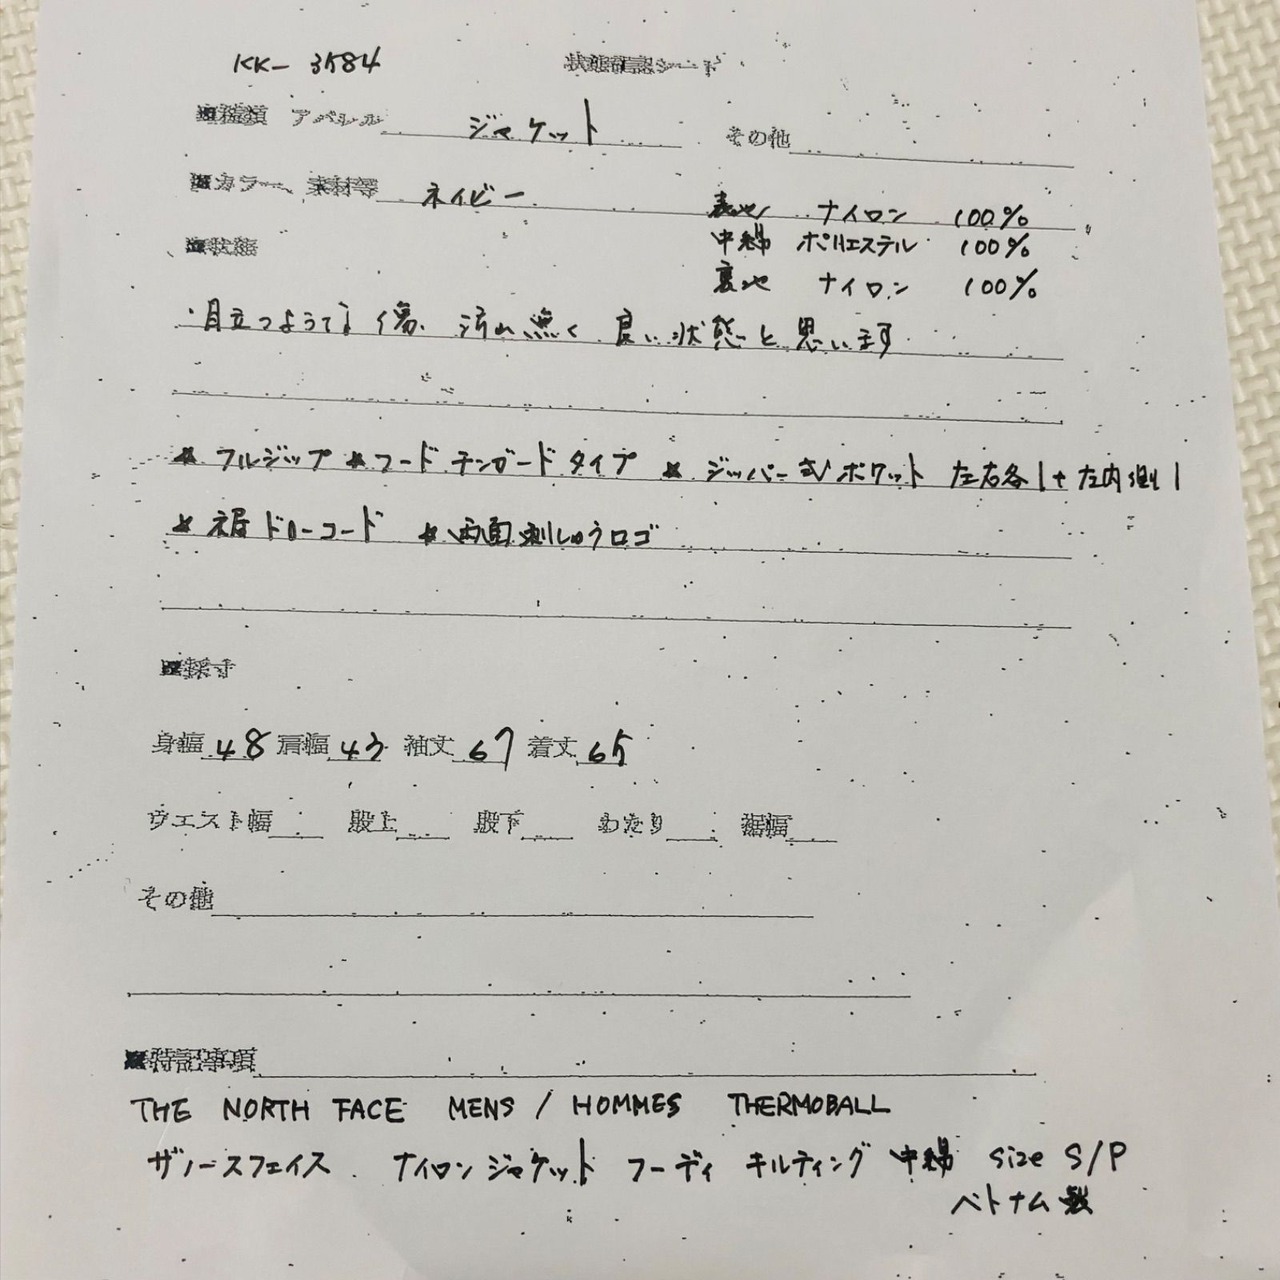 KK- 3584 状態確認シート
■種類 アパレル ジャケット その他
■カラー、素材等 ネイビー 表地 ナイロン 100%
中綿 ポリエステル 100%
■状態
裏地 ナイロン 100%
・目立つような傷、汚れ無く 良い状態と思います
★フルジップ ★フード チンガードタイプ ★ジッパー式ポケット 左右各1+左内側1
★裾ドローコード ★両面刺しゅうロゴ
■採寸
身幅 48 肩幅 43 袖丈 67 着丈 65
ウエスト幅 股上 股下 わたり 裾幅
その他
■特記事項
THE NORTH FACE MENS / HOMMES THERMOBALL
ザノースフェイス ナイロンジャケット フーディ キルティング 中綿 size S/P
ベトナム製